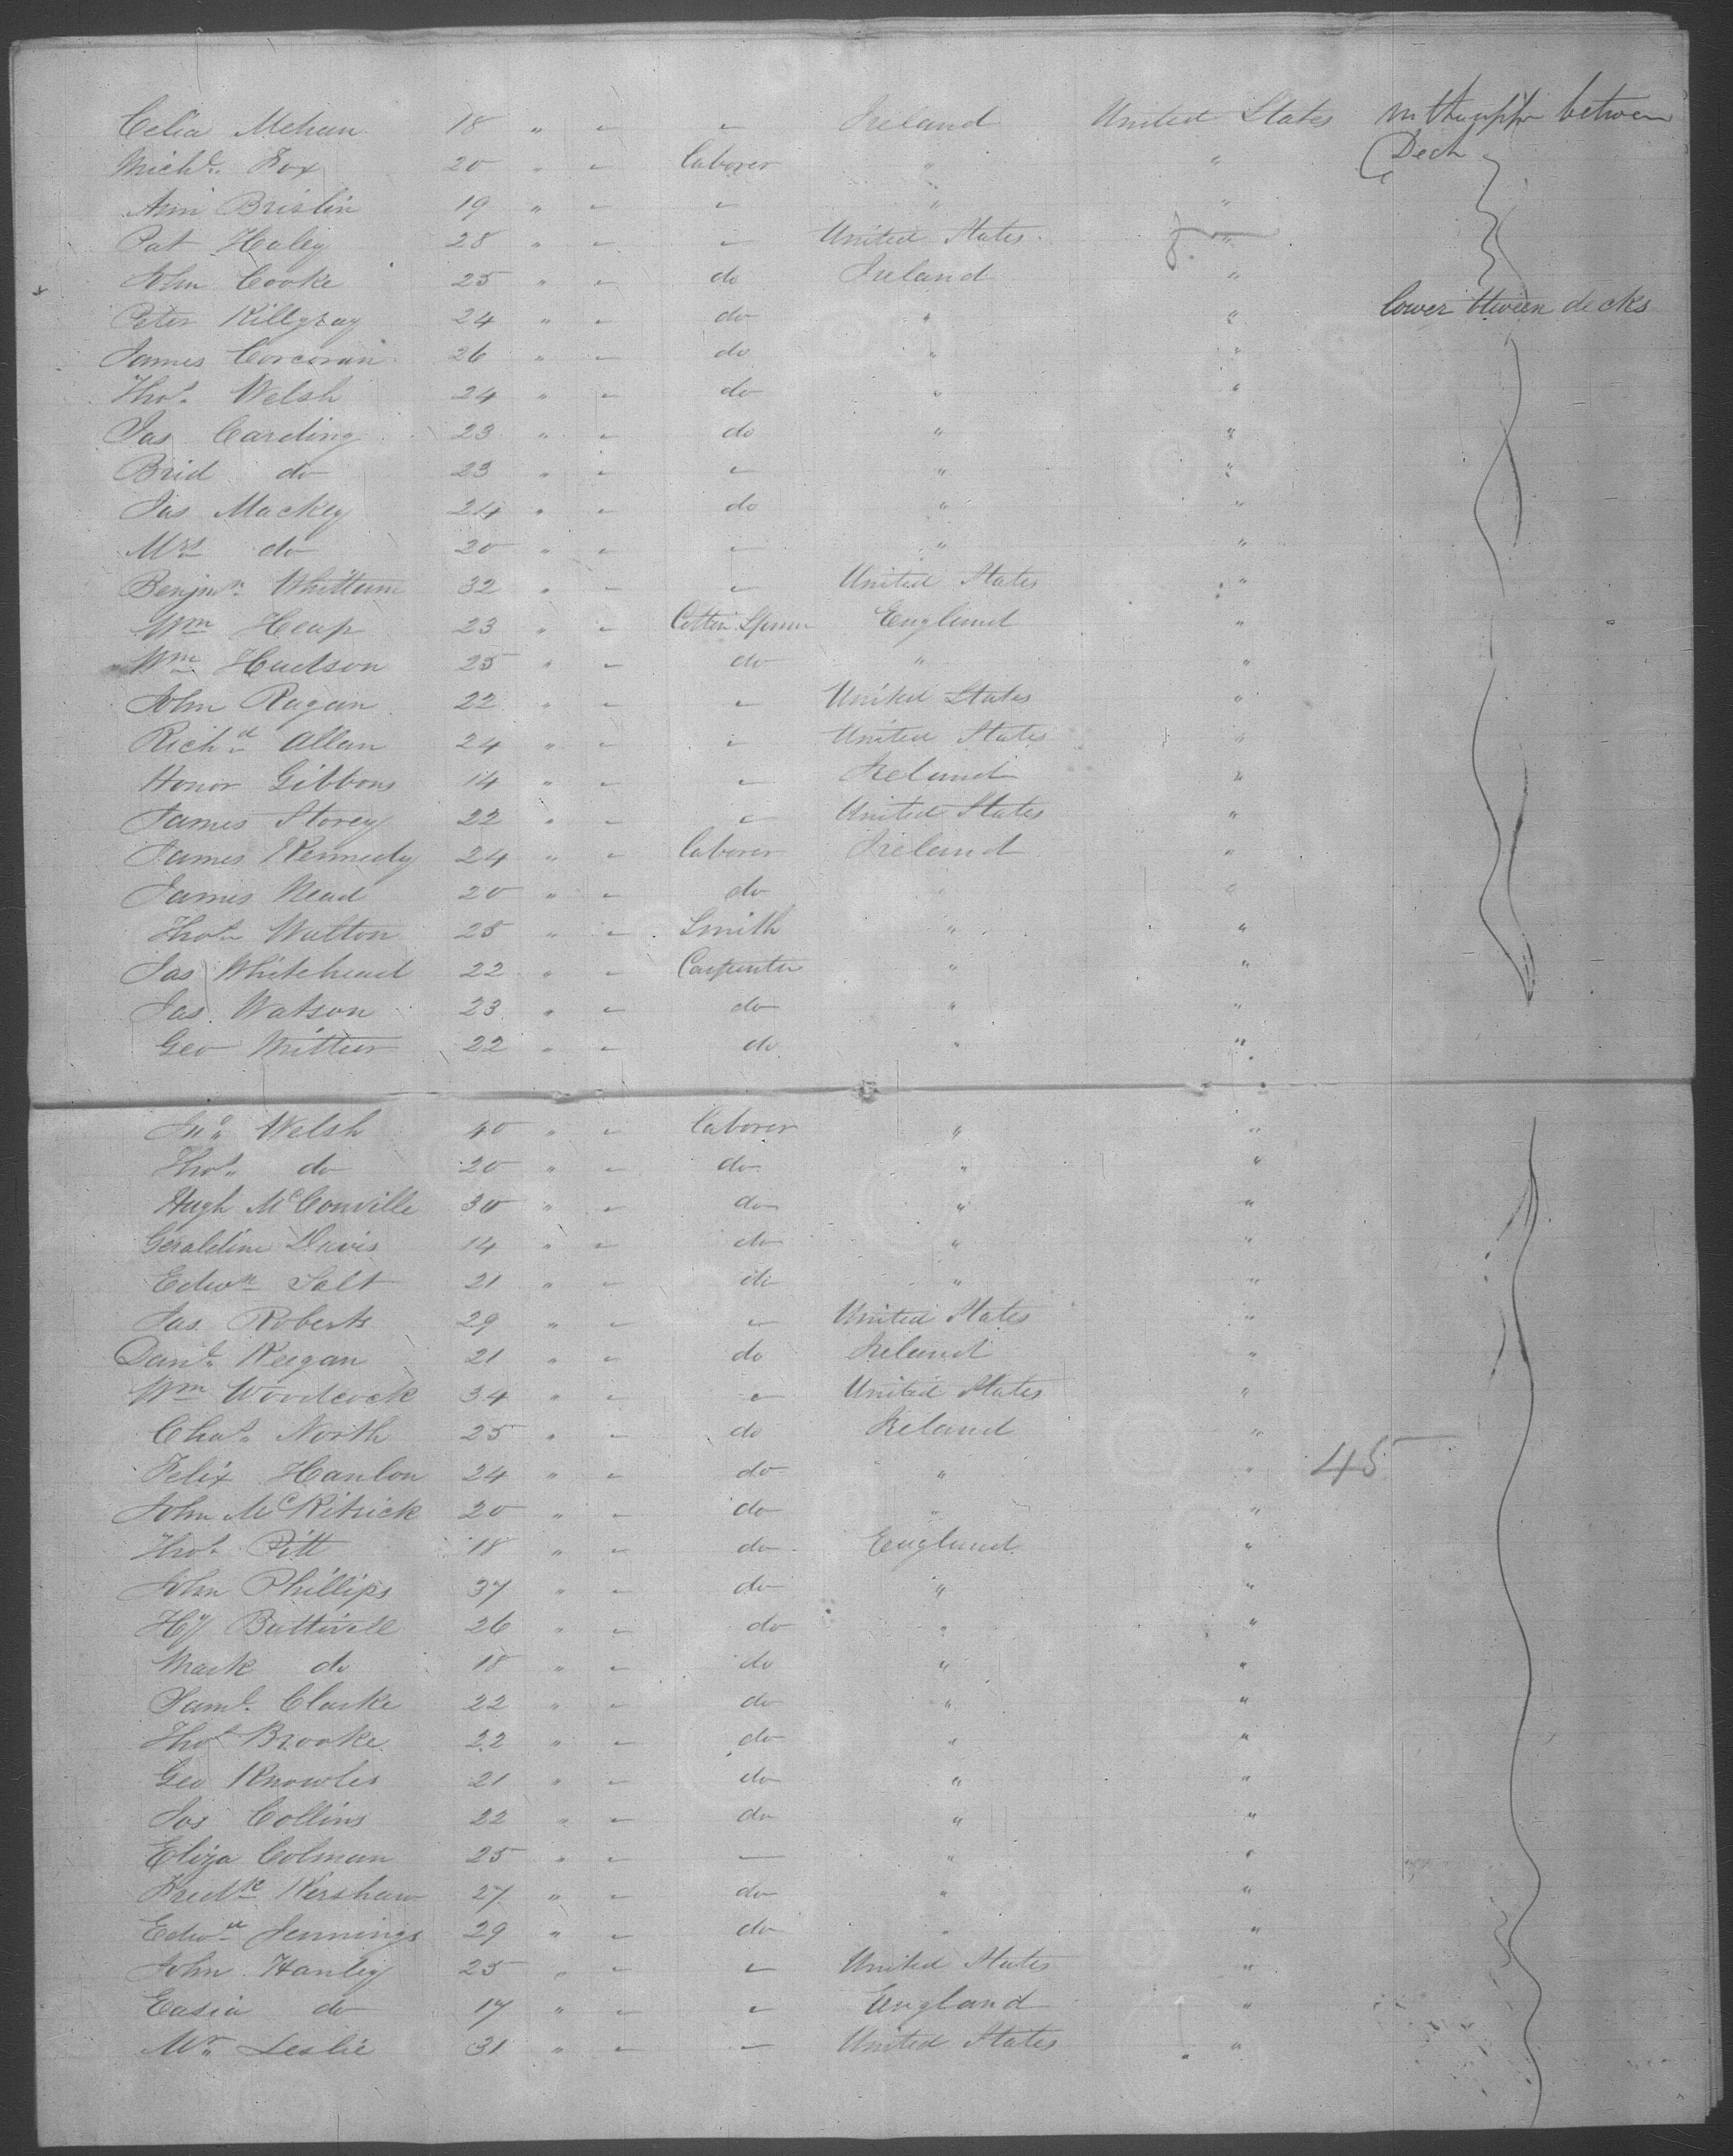 Celia Mehan 18 " " " Ireland United States in the upper between
Mich.l Fox 20 " " laborer " " Deck
Ann Brislin 19 " " " " "
Pat Haley 28 " " " United States "
John Cooke 25 " " do Ireland "
Peter Killgray 24 " " do " " lower tween decks
James Corcoran 26 " " do " "
Thos. Welsh 24 " " do " "
Jas Carding 23 " " do " "
Brid do 23 " " " " "
Jas Mackey 24 " " do " "
Mrs do 20 " " " " "
Benjn. Whittum 32 " " " United States "
Wm Heap 23 " " Cotton Spinn England "
Wm Hudson 25 " " do " "
John Ragan 22 " " " United States "
Richd Allan 24 " " " United States "
Honor Gibbons 14 " " " Ireland "
James Storey 22 " " " United States "
James Kennedy 24 " " laborer Ireland "
James Nead 20 " " do " "
Thos. Walton 25 " " Smith " "
Jas Whitehead 22 " " Carpenter " "
Jas. Watson 23 " " do " "
Geo 22 " " do " "
Jno. Welsh 40 " " laborer " "
Thos. do 20 " " do " "
Hugh McConville 30 " " do " "
Geraldine Davis 14 " " do " "
Edwn Salt 21 " " do " "
Jas. Roberts 29 " " " United States "
Danl. Keegan 21 " " do Ireland "
Wm Woodcock 34 " " " United States "
Chas. North 25 " " do Ireland "
Felix Hanlon 24 " " do " " 45
John McKitrick 20 " " do " "
Thos. Pitt 18 " " do England "
John Phillips 37 " " do " "
Hy Buttivill 26 " " do " "
Mark do 18 " " do " "
Saml. Clarke 22 " " do " "
Thos Brooke 22 " " do " "
Geo Knowles 21 " " do " "
Jos Collins 22 " " do " "
Eliza Colman 25 " " " " "
Fredk Kershaw 27 " " do " "
Edwd Jennings 29 " " do " "
John Hanley 25 " " " United States "
Easia do 17 " " " England "
Mr. Leslie 31 " " " United States "